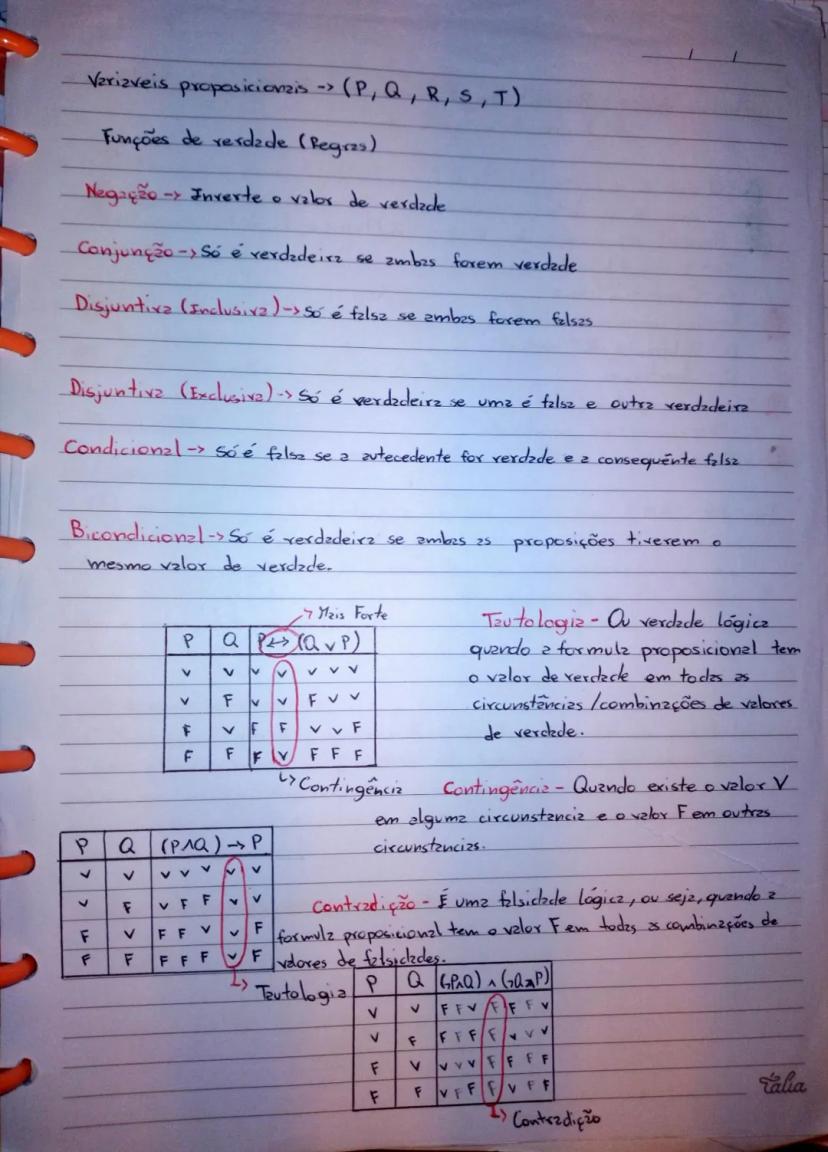 Variaveis proposicionais -> (P, Q, R, S, T)
Funções de verdade (Regras)
Negação -> Inverte o valor de verdade
Conjunção -> Só é verdadeira se ambas forem verdade
Disjuntiva (Inclusiva) -> Só é falsa se ambas forem falsas
Disjuntiva (Exclusiva) -> Só é verdadeira se uma é falsa e outra verdadeira
Condicional -> Só é falsa se a antecedente for verdade e a consequênte falsa
Bicondicional -> Só é verdadeira se ambas as proposições tiverem o
mesmo valor de verdade.
Mais Forte
P Q P ↔ (Q ∨ P)
V V V V V V V
V F V V F V V
F V F F V V F
F F F V F F F
Contingência
Tautologia - A verdade lógica
quando a formula proposicional tem
o valor de verdade em todas as
circunstâncias / combinações de valores
de verdade.
Contingência - Quando existe o valor V
em alguma circunstancia e o valor F em outras
circunstancias.
P Q (P∧Q) → P
V V V V V V V
V F V F F V V
F V F F V V F
F F F F F V F
Tautologia
Contradição - É uma falsidade lógica, ou seja, quando a
formula proposicional tem o valor F em todas as combinações de
valores de falsidades.
P Q (¬P∧Q) ∧ (¬Q∧P)
V V F F V F F F V
V F F F F F V V V
F V V V V F F F F
F F V F F F V F F
Contradição
Tália